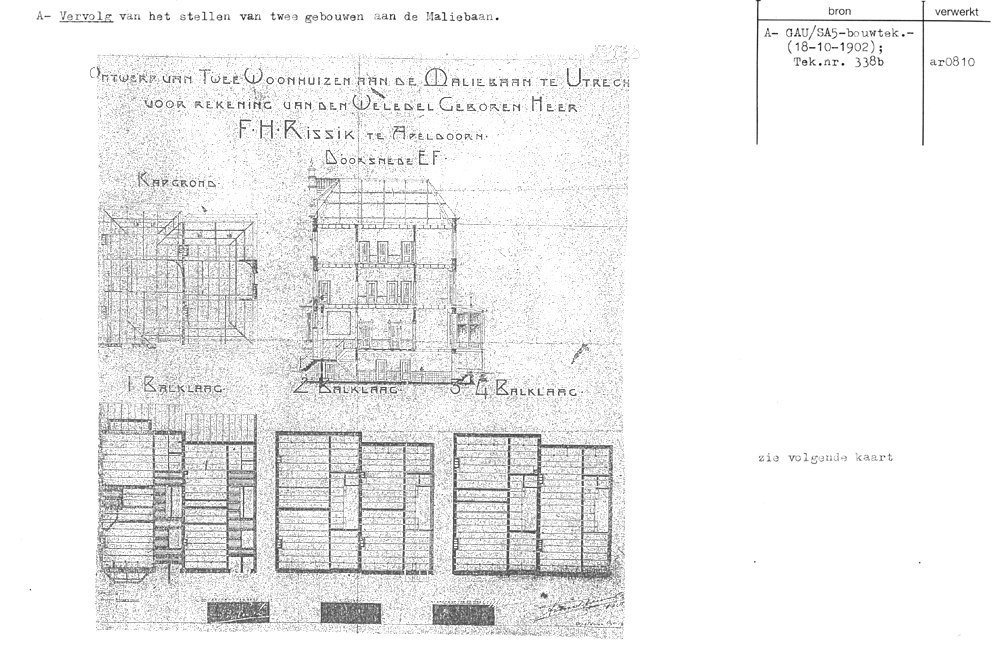 A- Vervolg van het stellen van twee gebouwen aan de Maliebaan.
bron
verwerkt
A- GAU/SA5-bouwtek.-
(18-10-1902);
Tek.nr. 338b
ar0810
Ontwerp van Twee Woonhuizen aan de Maliebaan te Utrech
voor rekening van den Weledel Geboren Heer
F.H. Rissik te Apeldoorn.
Doorsnede EF.
Kapgrond.
1 Balklaag.
2 Balklaag.
3-4 Balklaag.
zie volgende kaart